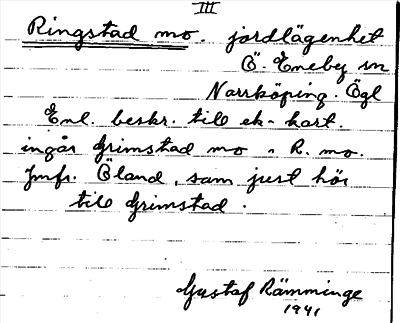 III
Ringstad mo. jordlägenhet
Ö. Eneby sn
Norrköping. Ögl
Enl. beskr. till ek-kart.
ingår Grimstad mo i R. mo.
Jmfr. Öland, som just hör
till Grimstad.
Gustaf Rämminge
1941